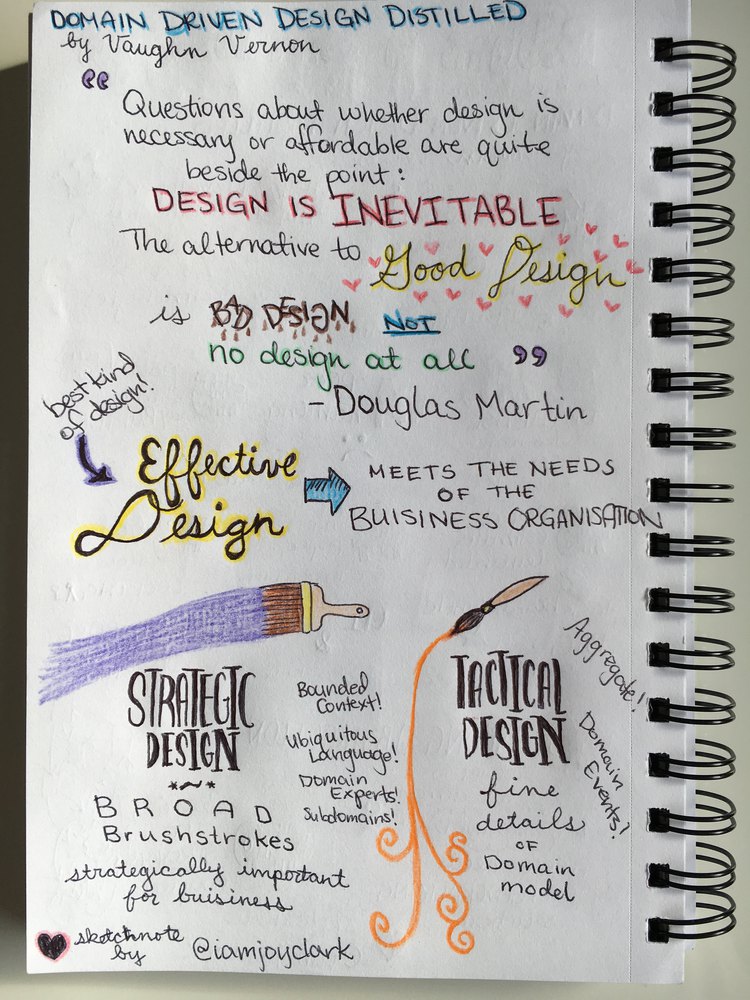 DOMAIN DRIVEN DESIGN DISTILLED
by Vaughn Vernon
“
Questions about whether design is
necessary or affordable are quite
beside the point:
DESIGN IS INEVITABLE
The alternative to Good Design
is BAD DESIGN, NOT
no design at all ”
- Douglas Martin
best kind
of design!
Effective
Design
MEETS THE NEEDS
OF THE
BUISINESS ORGANISATION
STRATEGIC
DESIGN
BROAD
Brushstrokes
strategically important
for buisiness
Bounded
Context!
Ubiquitous
Language!
Domain
Experts!
Subdomains!
TACTICAL
DESIGN
fine
details
OF
Domain
model
Aggregate!
Domain
Events!
sketchnote
by @iamjoyclark